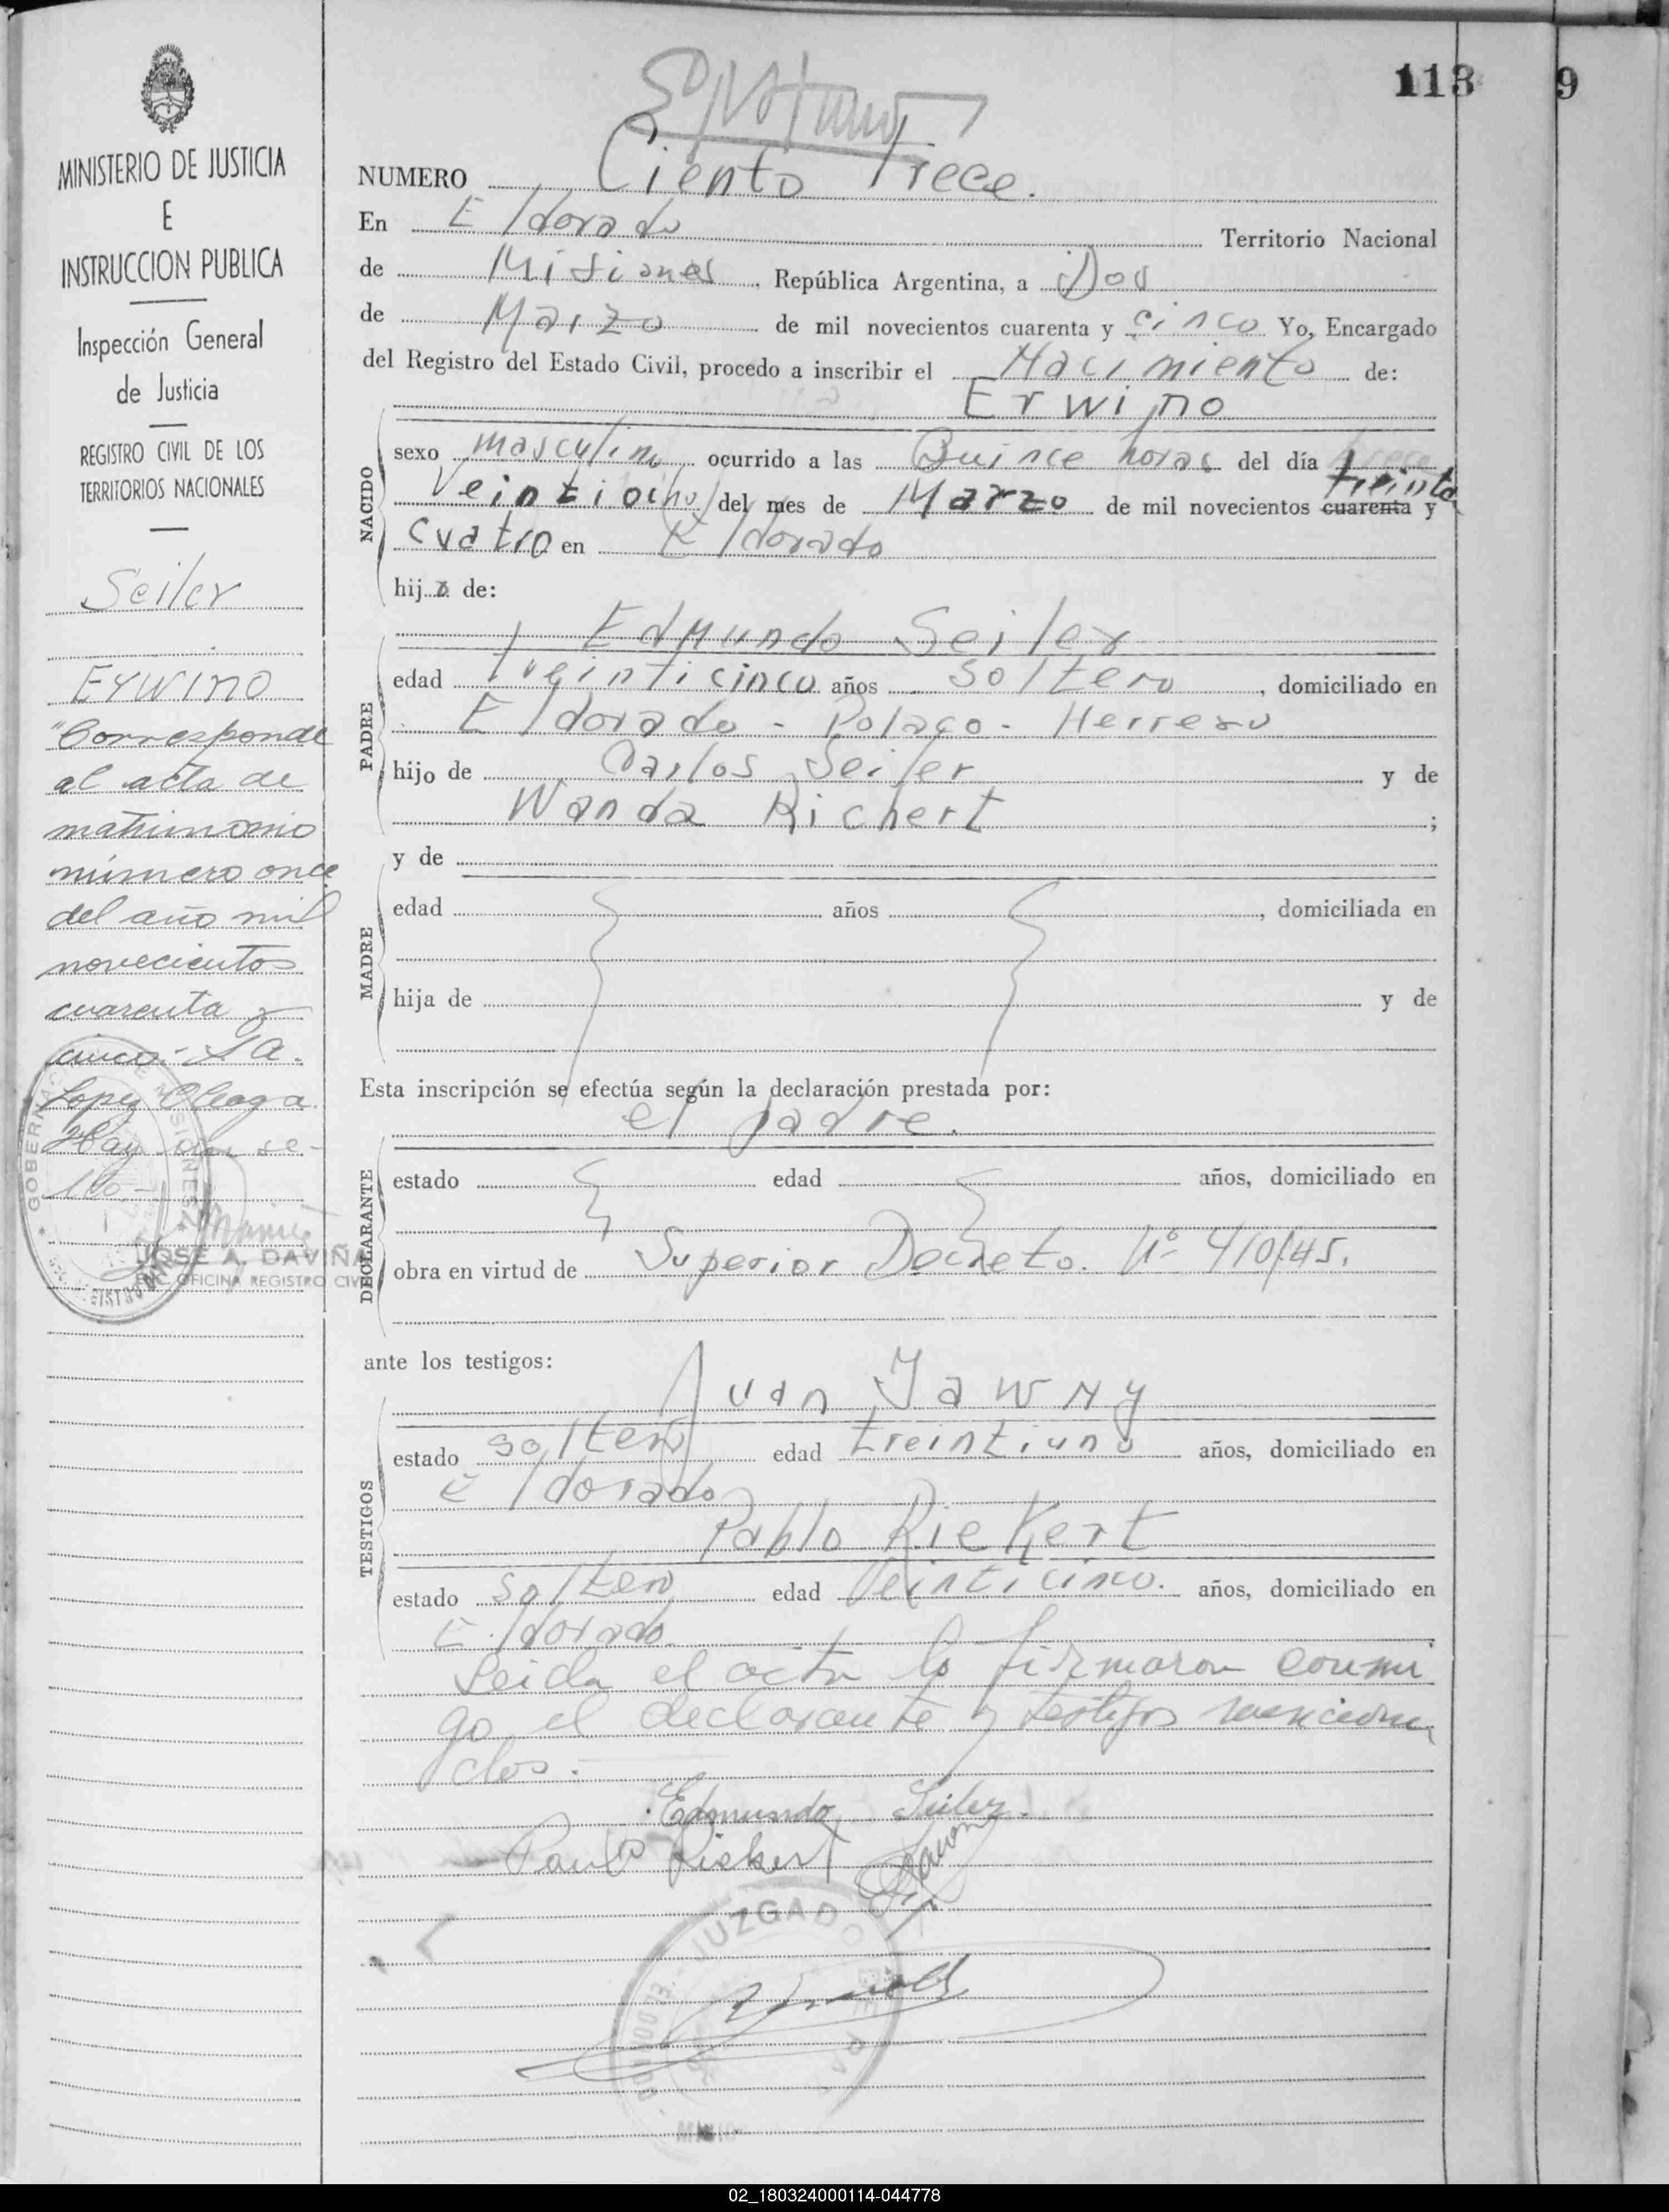 113
9
MINISTERIO DE JUSTICIA
E
INSTRUCCION PUBLICA
Inspección General
de Justicia
REGISTRO CIVIL DE LOS
TERRITORIOS NACIONALES
Seiler
Erwino
"Corresponde
al acta de
matrimonio
número once
del año mil
novecientos
cuarenta y
cinco.-
Lopez
Hay un se-
llo.-
JOSE A. DAVIÑA
ENC. OFICINA REGISTRO CIVIL
NUMERO Ciento Trece.
En Eldorado Territorio Nacional
de Misiones, República Argentina, a Dos
de Marzo de mil novecientos cuarenta y cinco Yo, Encargado
del Registro del Estado Civil, procedo a inscribir el Nacimiento de:
Erwino
NACIDO
sexo masculino ocurrido a las Quince horas del día
treinta
Veintiocho del mes de Marzo de mil novecientos cuarenta y
cuatro en Eldorado
hijo de:
PADRE
Edmundo Seiler
edad veinticinco años soltero, domiciliado en
Eldorado - Polaco - Herrero
hijo de Carlos Seiler y de
Wanda Richert;
MADRE
y de
edad años, domiciliada en
hija de y de
Esta inscripción se efectúa según la declaración prestada por:
DECLARANTE
el padre.
estado edad años, domiciliado en
obra en virtud de Superior Decreto. Nº 410/45.
ante los testigos:
TESTIGOS
Juan Jawny
estado soltero edad treintiuno años, domiciliado en
Eldorado
Pablo Riekert
estado soltero edad Veinticinco. años, domiciliado en
Eldorado.
Leida el acta la firmaron conmi
go el declarante y testigos menciona
dos.-
Edmundo Seiler.
JUZGADO
02_180324000114-044778